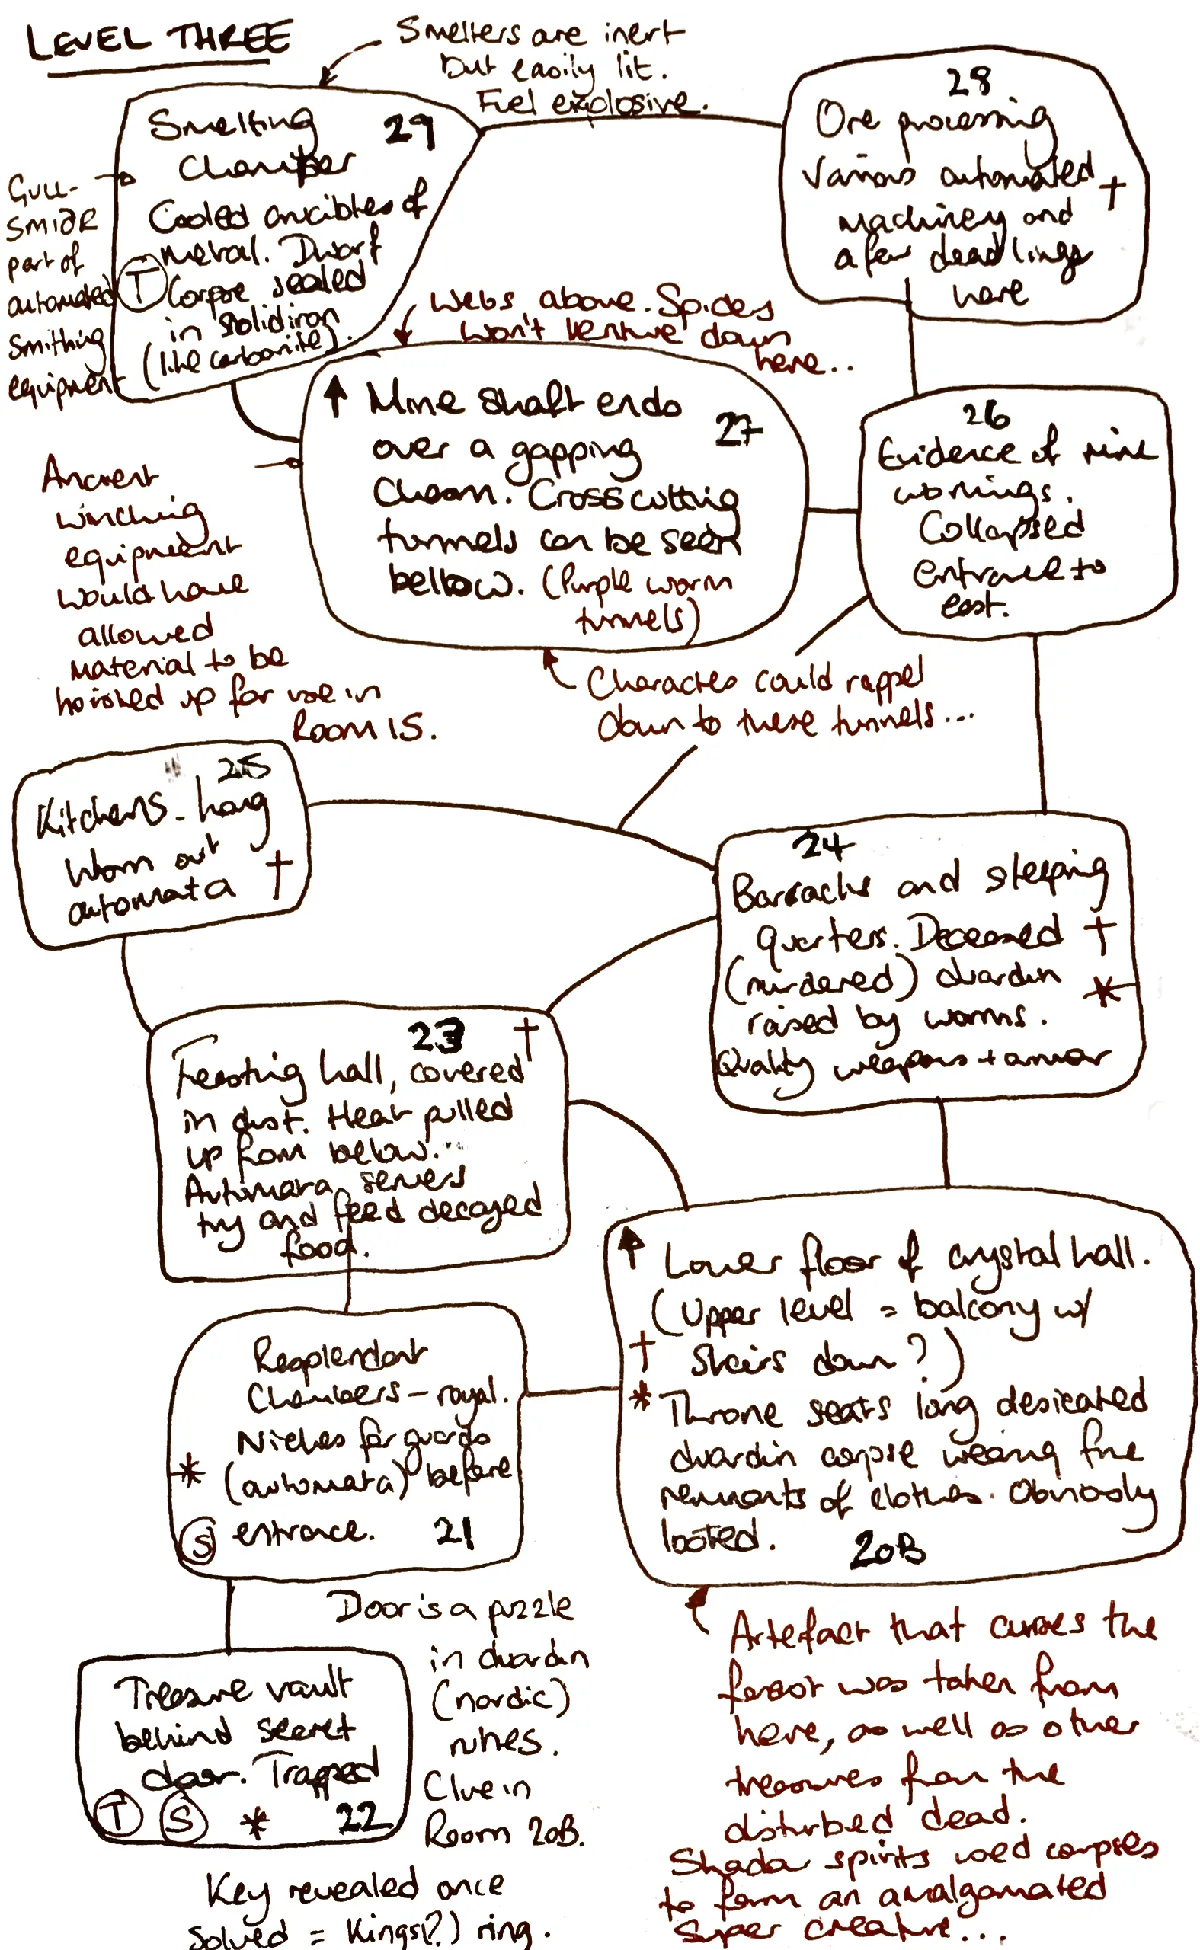 LEVEL THREE
Smelters are inert
but easily lit.
Fuel explosive.
Smelting 29
Chamber
Cooled crucibles of
metal. Dwarf
T Corpse sealed
in solid iron
(like carbonite).
GULL-
SMIDR
part of
automated
smithing
equipment
28
Ore processing
Various automated †
machinery and
a few deadlings
here
Webs above. Spiders
won't venture down
here..
↑ Mine shaft ends
over a gapping 27
chasm. Crosscutting
tunnels can be seen
bellow. (Purple worm
tunnels)
26
Evidence of mine
workings.
Collapsed
entrance to
east.
Ancient
winching
equipment
would have
allowed
material to be
hoisted up for use in
Room 15.
Characters could rappel
down to these tunnels...
25
Kitchens -
Worn out
automata †
24
Barracks and sleeping
quarters. Deceased †
(murdered) duardin *
raised by worms.
Quality weapons + armour
23 †
Feasting hall, covered
in dust. Heat pulled
up from below...
Automata servers
try and feed decayed
food.
↑ Lower floor of crystal hall.
(Upper level = balcony w/
† stairs down?)
* Throne seats long desicated
duardin corpse wearing fine
remnants of clothes. Obviously
looted. 20B
Resplendant
Chambers - royal.
Niches for guards
* (automata) before
S entrace. 21
Door is a puzzle
in duardin
(nordic)
runes.
Clue in
Room 20B.
Treasure vault
behind secret
door. Trapped
T S * 22
Key revealed once
solved = Kings(?) ring.
Artefact that curses the
forest was taken from
here, as well as other
treasures from the
disturbed dead.
Shadow spirits used corpses
to form an amalgamated
super creature...